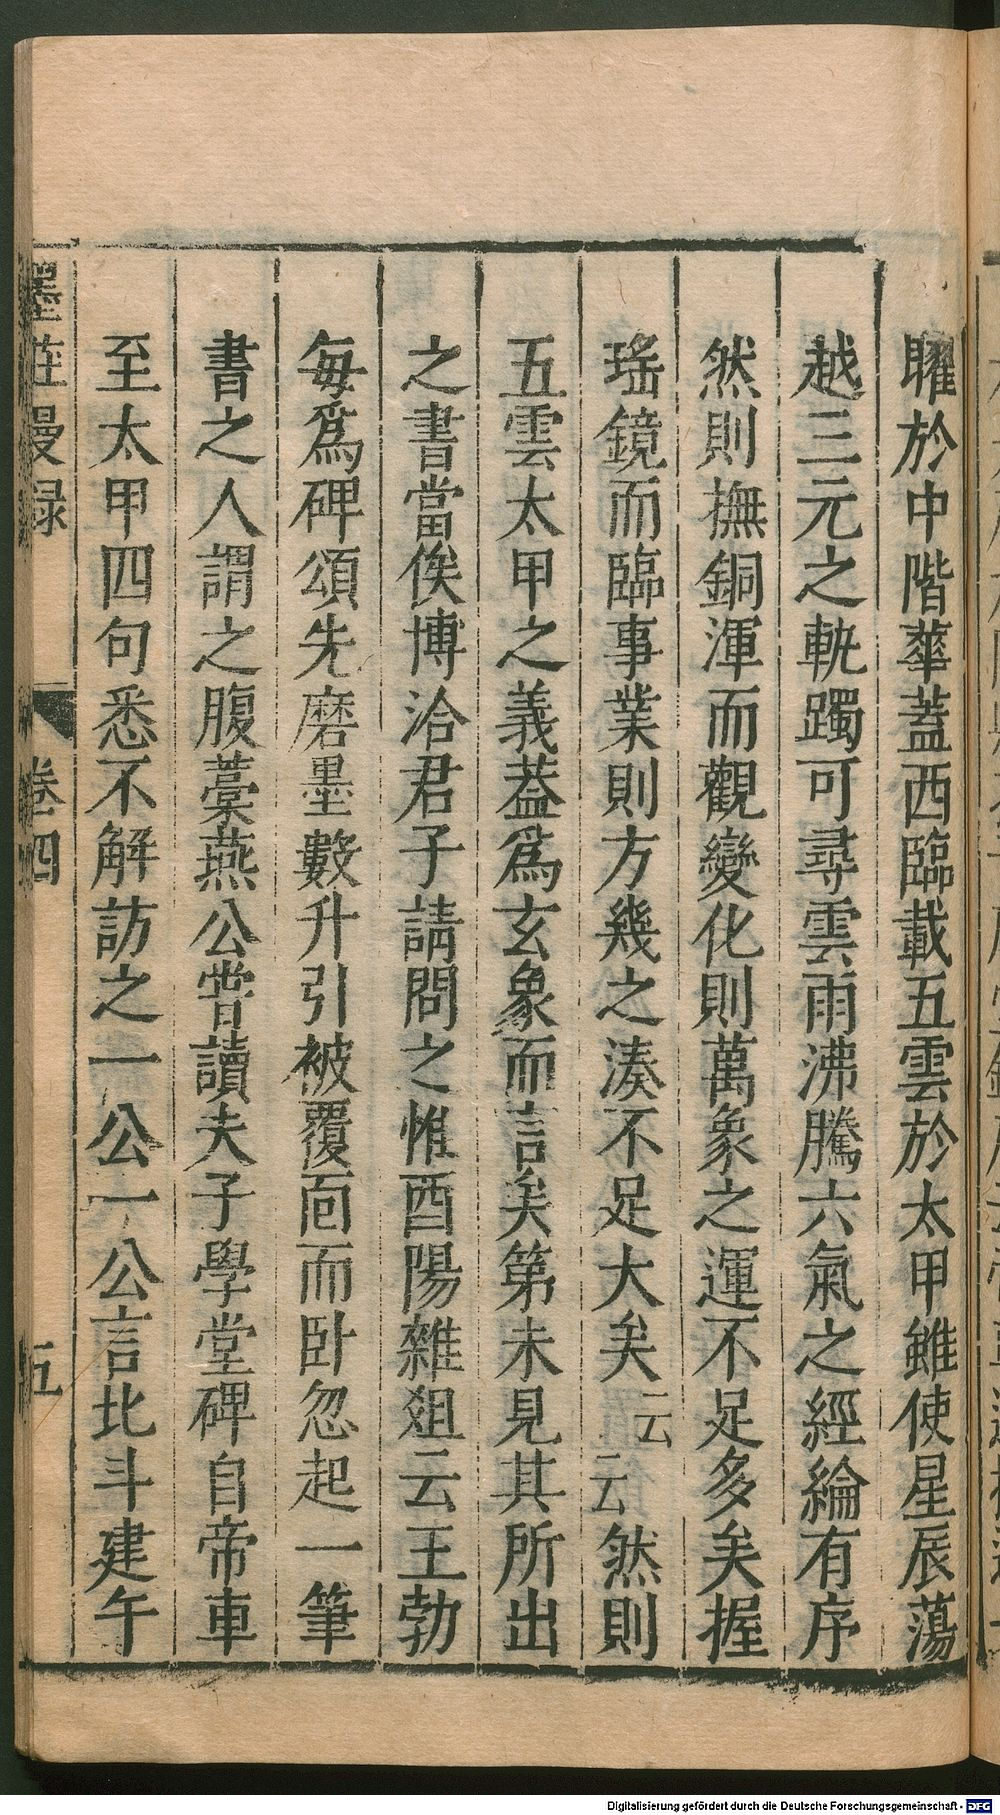 耀於中階華蓋西臨載五雲於太甲雖使星辰蕩
越三元之軌躅可尋雲雨沸騰六氣之經綸有序
然則撫銅渾而觀變化則萬象之運不足多矣握
瑤鏡而臨事業則方幾之湊不足大矣云云然則
五雲太甲之義蓋爲玄象而言矣第未見其所出
之書當俟博洽君子請問之惟酉陽雜俎云王勃
每爲碑頌先磨墨數升引被覆面而卧忽起一筆
書之人謂之腹藁燕公嘗讀夫子學堂碑自帝車
至太甲四句悉不解訪之一公一公言北斗建午
墨莊漫録 卷四 五
Digitalisierung gefördert durch die Deutsche Forschungsgemeinschaft - DFG